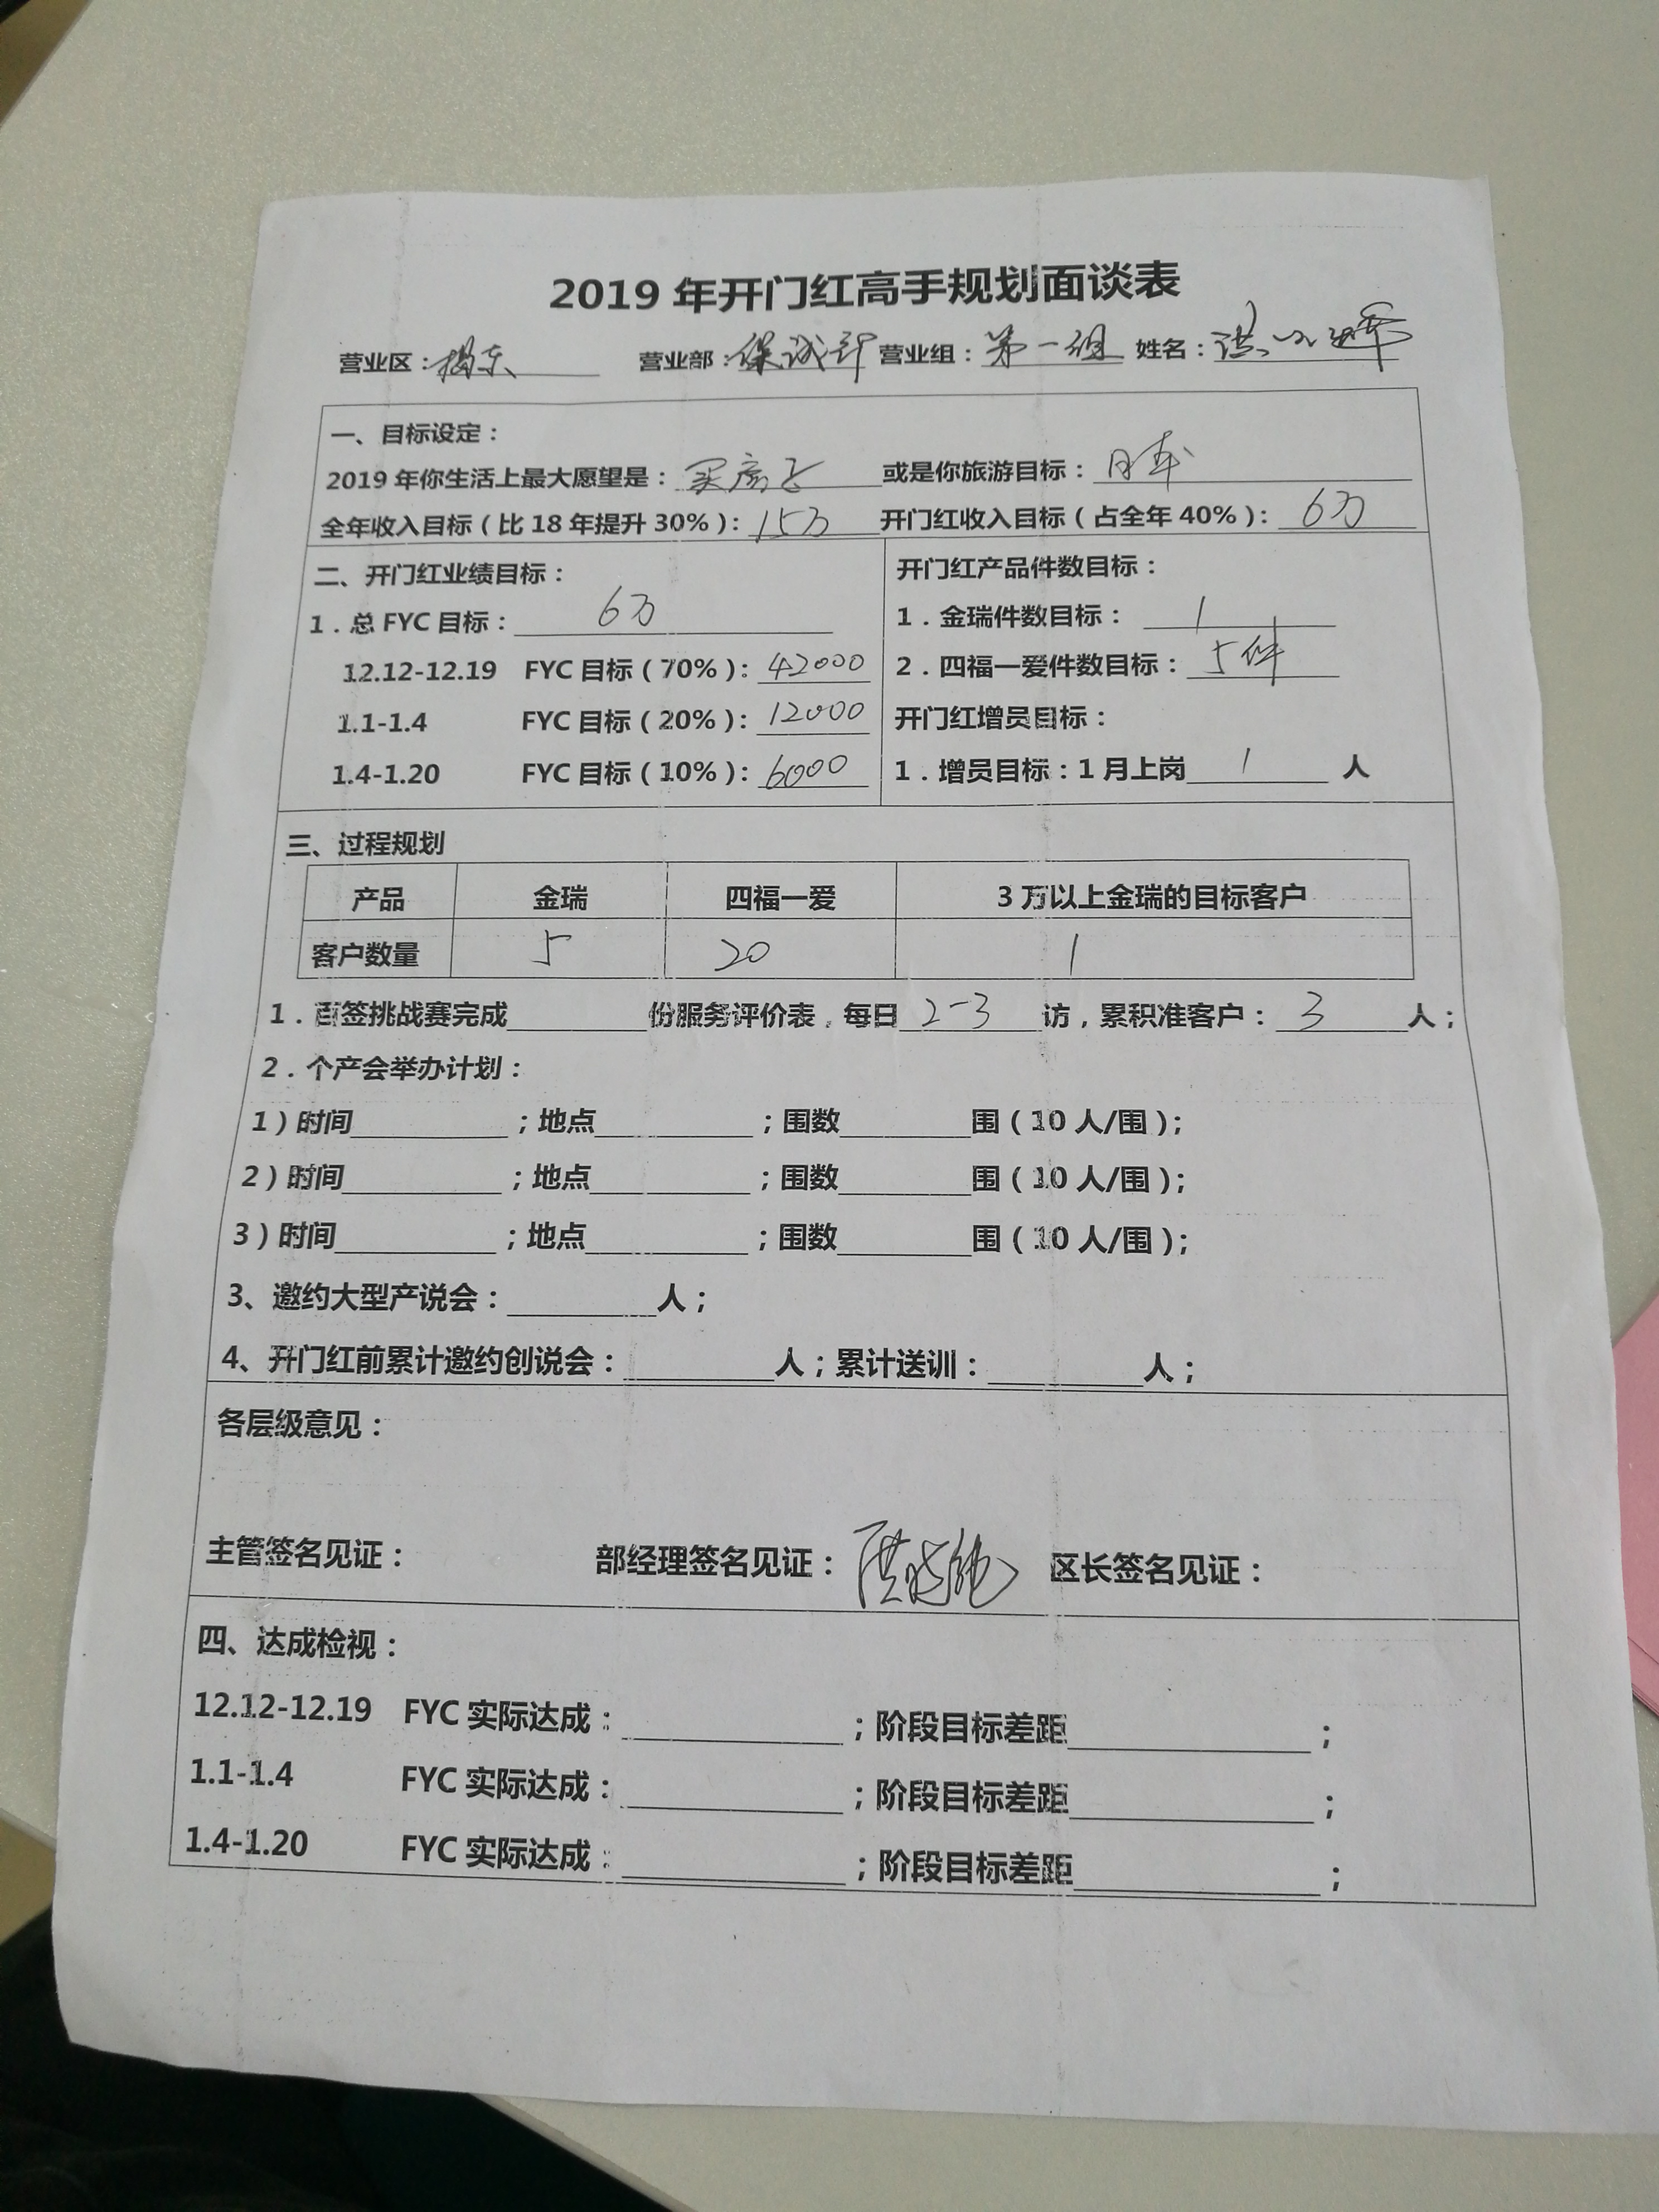 2019年开门红高手规划面谈表
营业区：揭东 营业部：保诚部 营业组：第一组 姓名：洪
一、目标设定：
2019年你生活上最大愿望是：买房子 或是你旅游目标：日本
全年收入目标（比18年提升30%）：15万 开门红收入目标（占全年40%）：6万
二、开门红业绩目标：
1．总FYC目标：6万
12.12-12.19 FYC目标（70%）：42000
1.1-1.4 FYC目标（20%）：12000
1.4-1.20 FYC目标（10%）：6000
开门红产品件数目标：
1．金瑞件数目标：1
2．四福一爱件数目标：5件
开门红增员目标：
1．增员目标：1月上岗 1 人
三、过程规划
产品 金瑞 四福一爱 3万以上金瑞的目标客户
客户数量 5 20 1
1．百签挑战赛完成______份服务评价表，每日2-3访，累积准客户：3人；
2．个产会举办计划：
1）时间______；地点______；围数______围（10人/围）；
2）时间______；地点______；围数______围（10人/围）；
3）时间______；地点______；围数______围（10人/围）；
3、邀约大型产说会：______人；
4、开门红前累计邀约创说会：______人；累计送训：______人；
各层级意见：
主管签名见证： 部经理签名见证： 区长签名见证：
四、达成检视：
12.12-12.19 FYC实际达成：______；阶段目标差距______；
1.1-1.4 FYC实际达成：______；阶段目标差距______；
1.4-1.20 FYC实际达成：______；阶段目标差距______；